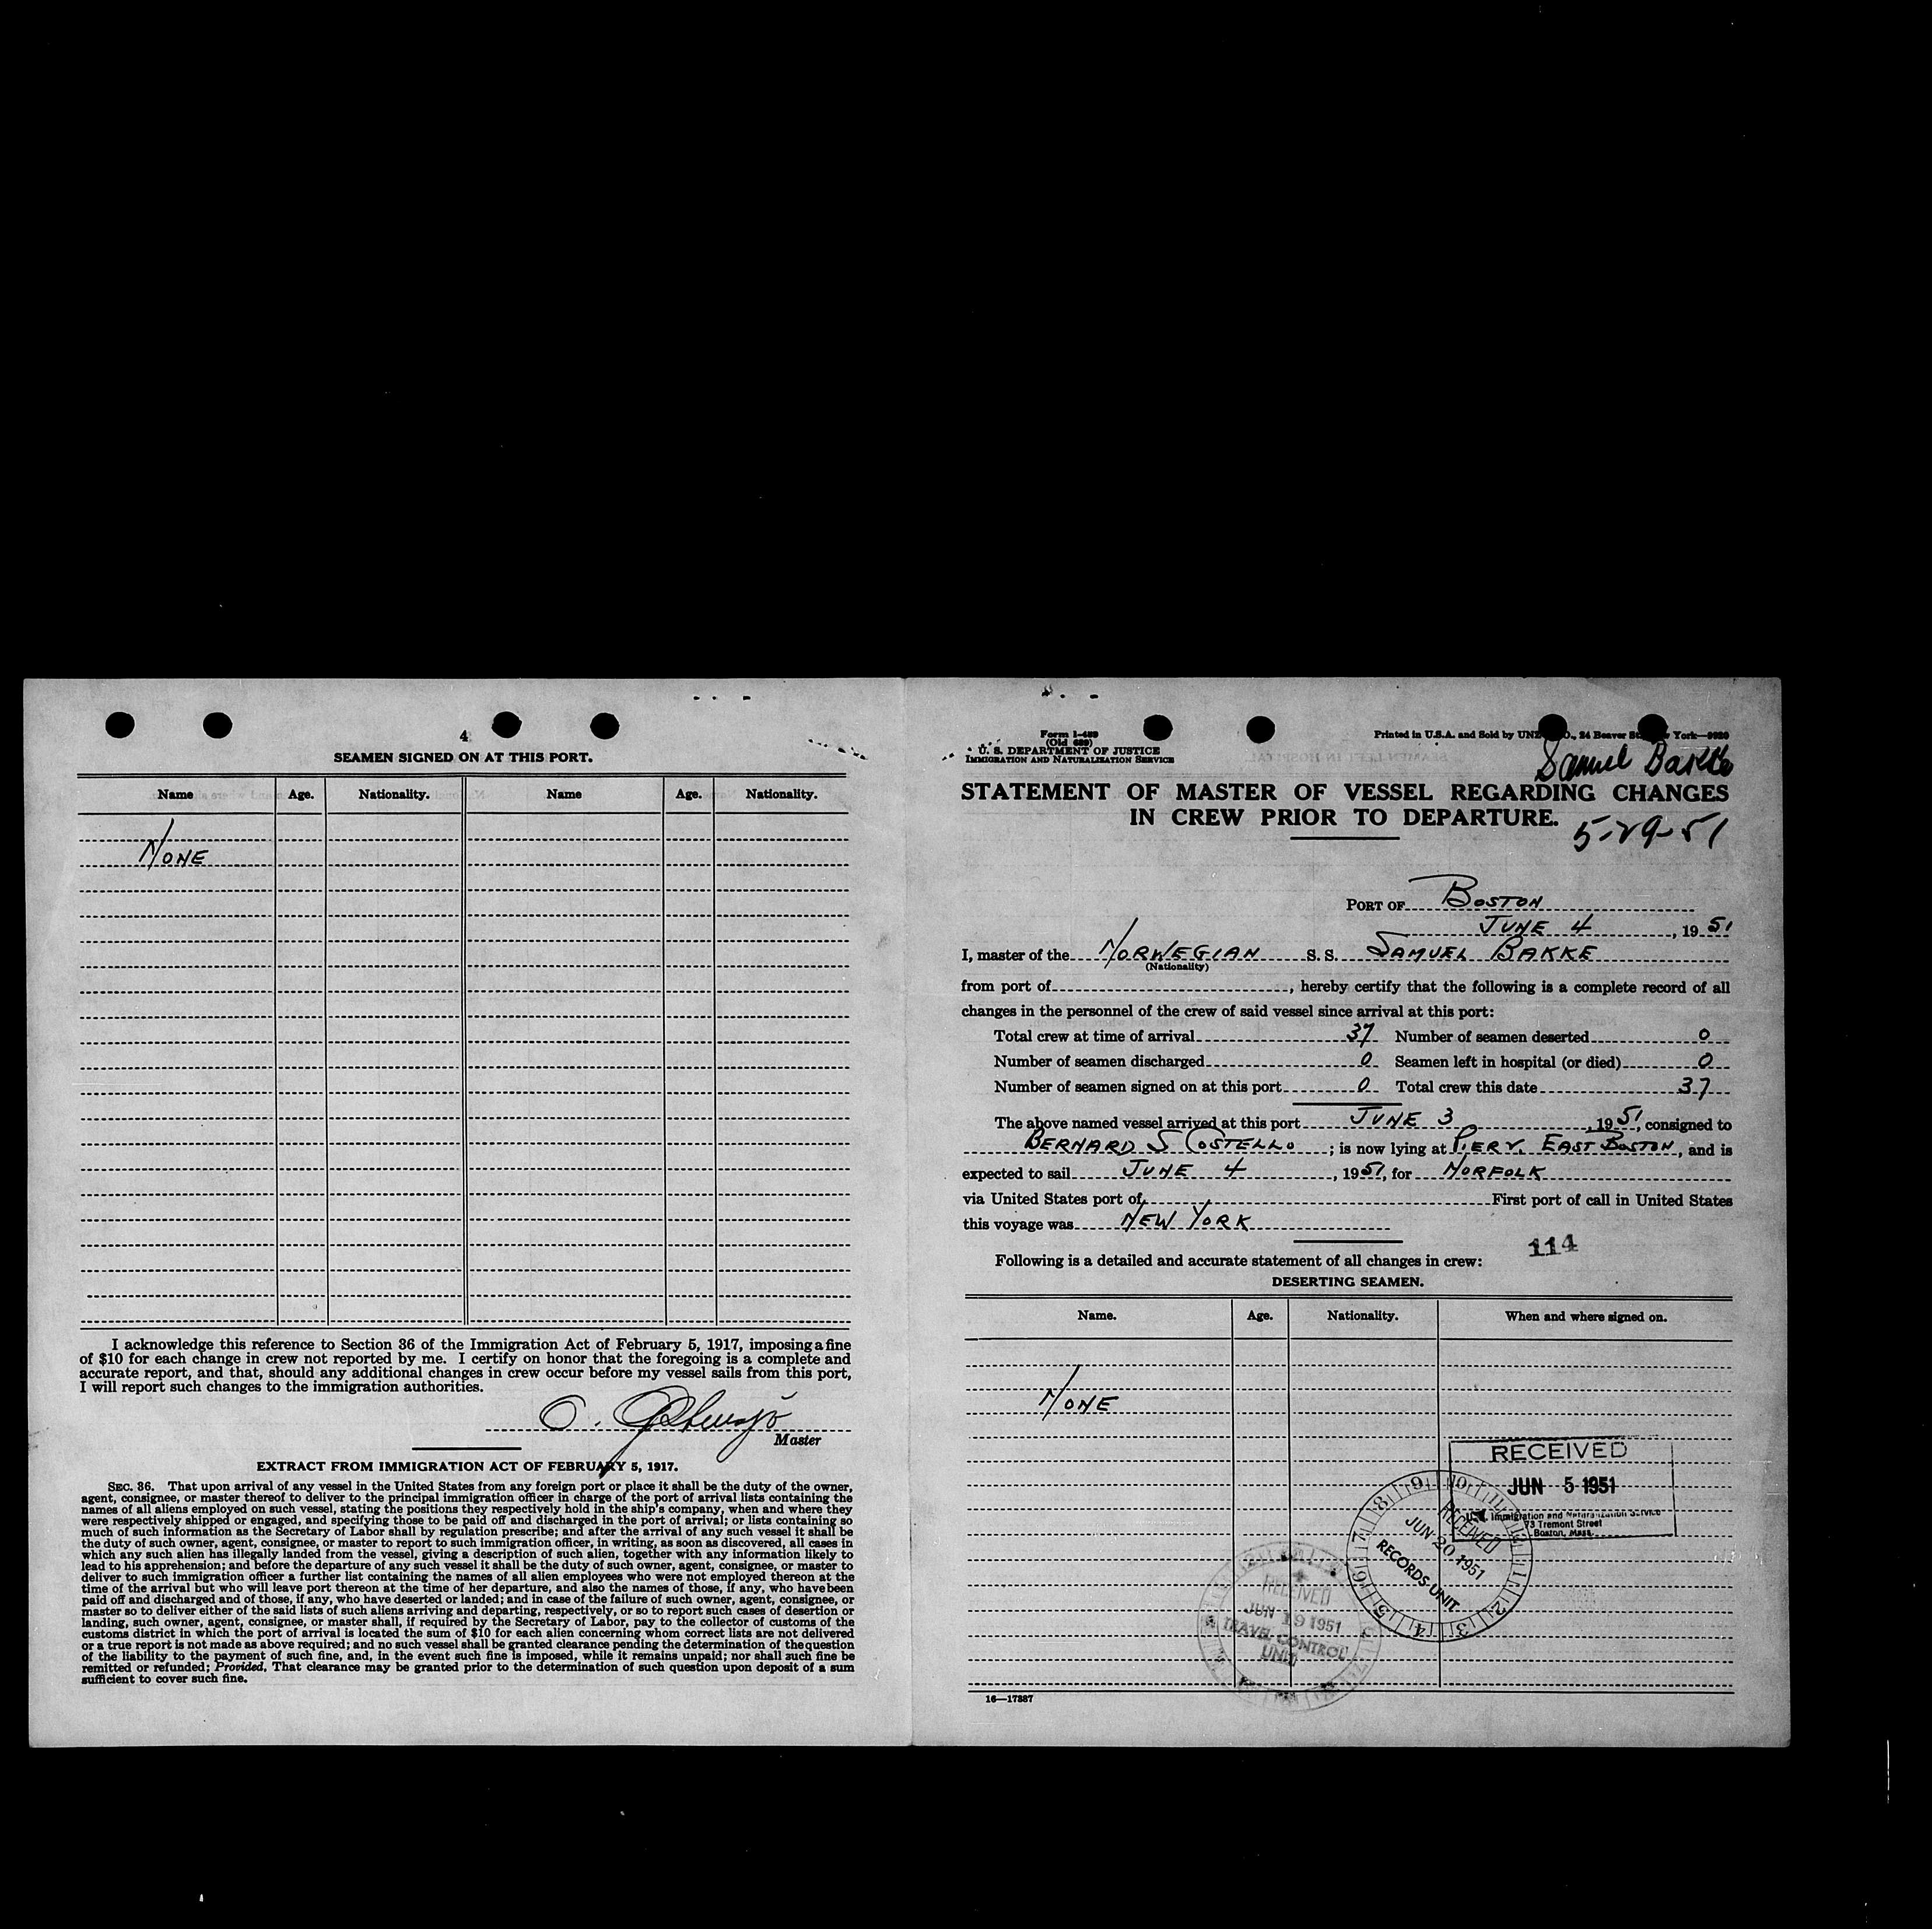 4
SEAMEN SIGNED ON AT THIS PORT.
Name Age. Nationality. Name Age. Nationality.
NONE
I acknowledge this reference to Section 36 of the Immigration Act of February 5, 1917, imposing a fine
of $10 for each change in crew not reported by me. I certify on honor that the foregoing is a complete and
accurate report, and that, should any additional changes in crew occur before my vessel sails from this port,
I will report such changes to the immigration authorities.
Master
EXTRACT FROM IMMIGRATION ACT OF FEBRUARY 5, 1917.
SEC. 36. That upon arrival of any vessel in the United States from any foreign port or place it shall be the duty of the owner,
agent, consignee, or master thereof to deliver to the principal immigration officer in charge of the port of arrival lists containing the
names of all aliens employed on such vessel, stating the positions they respectively hold in the ship's company, when and where they
were respectively shipped or engaged, and specifying those to be paid off and discharged in the port of arrival; or lists containing so
much of such information as the Secretary of Labor shall by regulation prescribe; and after the arrival of any such vessel it shall be
the duty of such owner, agent, consignee, or master to report to such immigration officer, in writing, as soon as discovered, all cases in
which any such alien has illegally landed from the vessel, giving a description of such alien, together with any information likely to
lead to his apprehension; and before the departure of any such vessel it shall be the duty of such owner, agent, consignee, or master to
deliver to such immigration officer a further list containing the names of all alien employees who were not employed thereon at the
time of the arrival but who will leave port thereon at the time of her departure, and also the names of those, if any, who have been
paid off and discharged and of those, if any, who have deserted or landed; and in case of the failure of such owner, agent, consignee, or
master so to deliver either of the said lists of such aliens arriving and departing, respectively, or so to report such cases of desertion or
landing, such owner, agent, consignee, or master shall, if required by the Secretary of Labor, pay to the collector of customs of the
customs district in which the port of arrival is located the sum of $10 for each alien concerning whom correct lists are not delivered
or a true report is not made as above required; and no such vessel shall be granted clearance pending the determination of the question
of the liability to the payment of such fine, and, in the event such fine is imposed, while it remains unpaid; nor shall such fine be
remitted or refunded; Provided, That clearance may be granted prior to the determination of such question upon deposit of a sum
sufficient to cover such fine.
Form I-489
(Old 689)
U. S. DEPARTMENT OF JUSTICE
IMMIGRATION AND NATURALIZATION SERVICE
Printed in U.S.A. and Sold by 24 Beaver York—9920
Samuel Bakke
STATEMENT OF MASTER OF VESSEL REGARDING CHANGES
IN CREW PRIOR TO DEPARTURE.
5-29-51
PORT OF BOSTON
JUNE 4, 1951
I, master of the NORWEGIAN S. S. SAMUEL BAKKE
(Nationality)
from port of, hereby certify that the following is a complete record of all
changes in the personnel of the crew of said vessel since arrival at this port:
Total crew at time of arrival 37 Number of seamen deserted 0
Number of seamen discharged 0 Seamen left in hospital (or died) 0
Number of seamen signed on at this port 0 Total crew this date 37
The above named vessel arrived at this port JUNE 3, 1951, consigned to
BERNARD S COSTELLO; is now lying at PIER V. EAST BOSTON, and is
expected to sail JUNE 4, 1951, for NORFOLK
via United States port of First port of call in United States
this voyage was NEW YORK
114
Following is a detailed and accurate statement of all changes in crew:
DESERTING SEAMEN.
Name. Age. Nationality. When and where signed on.
NONE
RECEIVED
JUN 5 1951
Immigration and Naturalization Service
73 Tremont Street
Boston, Mass.
RECEIVED
JUN 20 1951
RECORDS UNIT
RECEIVED
JUN 19 1951
TRAVEL CONTROL
UNIT
16—17387